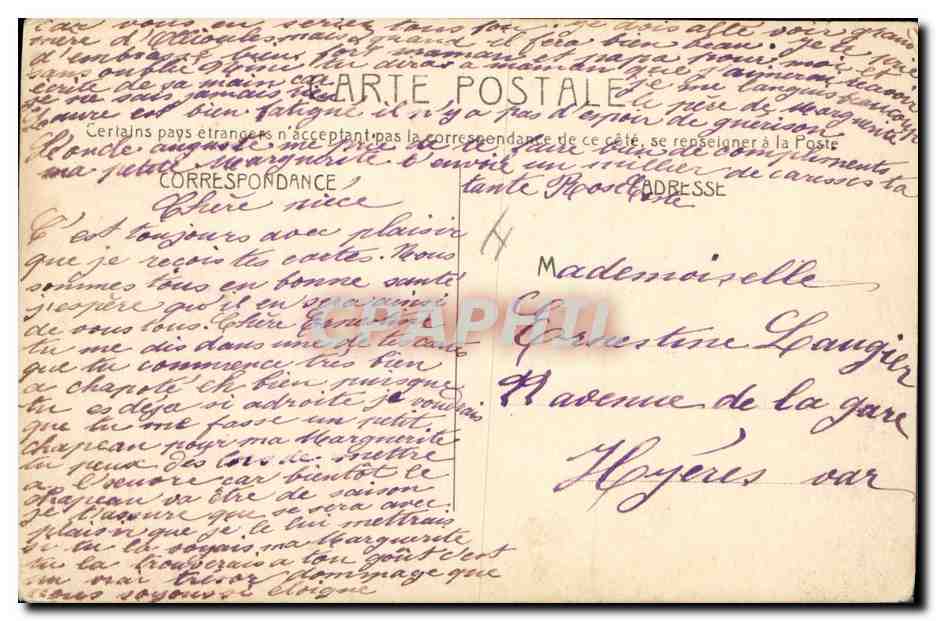 car vous en seriez tous fou. je dois allé voir grand
mère d'Ollioules mais quand il fera bien beau. Je te prie
d'embrasser bien fort maman et papa pour moi et
sans oublié tu diras a maman que j'aimerai ravoir
écrite de sa main ca je me languis beaucoup
Je ne sais jamais rien le père de Marguerite
CARTE POSTALE
est bien fatigué il n'y a pas d'espoir de guérison
Certains pays étrangers n'acceptant pas la correspondance de ce côté, se renseigner à la Poste
Tonde auguste me de faire de compliments
ma petite Marguerite t'envoie un millier de caresses ta
tante Rose
CORRESPONDANCE
ADRESSE
Chère nièce
C'est toujours avec plaisir
que je reçois tes cartes. Nous
sommes tous en bonne santé
j'espère qu'il en sera ainsi
de vous tous. Chère Ernestine
tu me dis dans une de tes cartes
que tu commence très bien
a chapoté eh bien puisque
tu es déja si adroite je voudrais
que tu me fasse un petit
chapeau pour ma Marguerite
tu peux dès lors de mettre
a l'œuvre car bientôt le
chapeau va être de saison
je t'assure que se sera avec
plaisir que je le lui mettrais
si tu la voyais ma Marguerite
tu la trouverais a ton goût c'est
un vrai trésor dommage que
nous soyons si éloigné
Mademoiselle
Ernestine Laugier
avenue de la gare
Hyères var
CPAPHIL